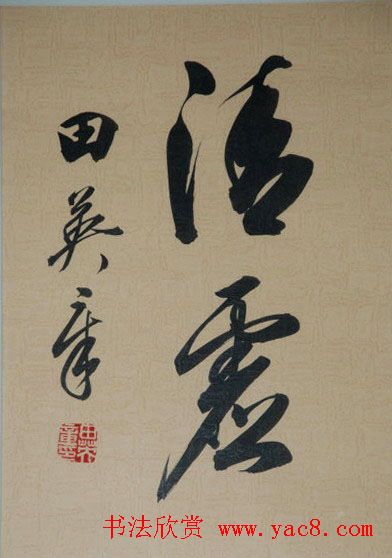 清虚
田英章
书法欣赏 www.yac8.com